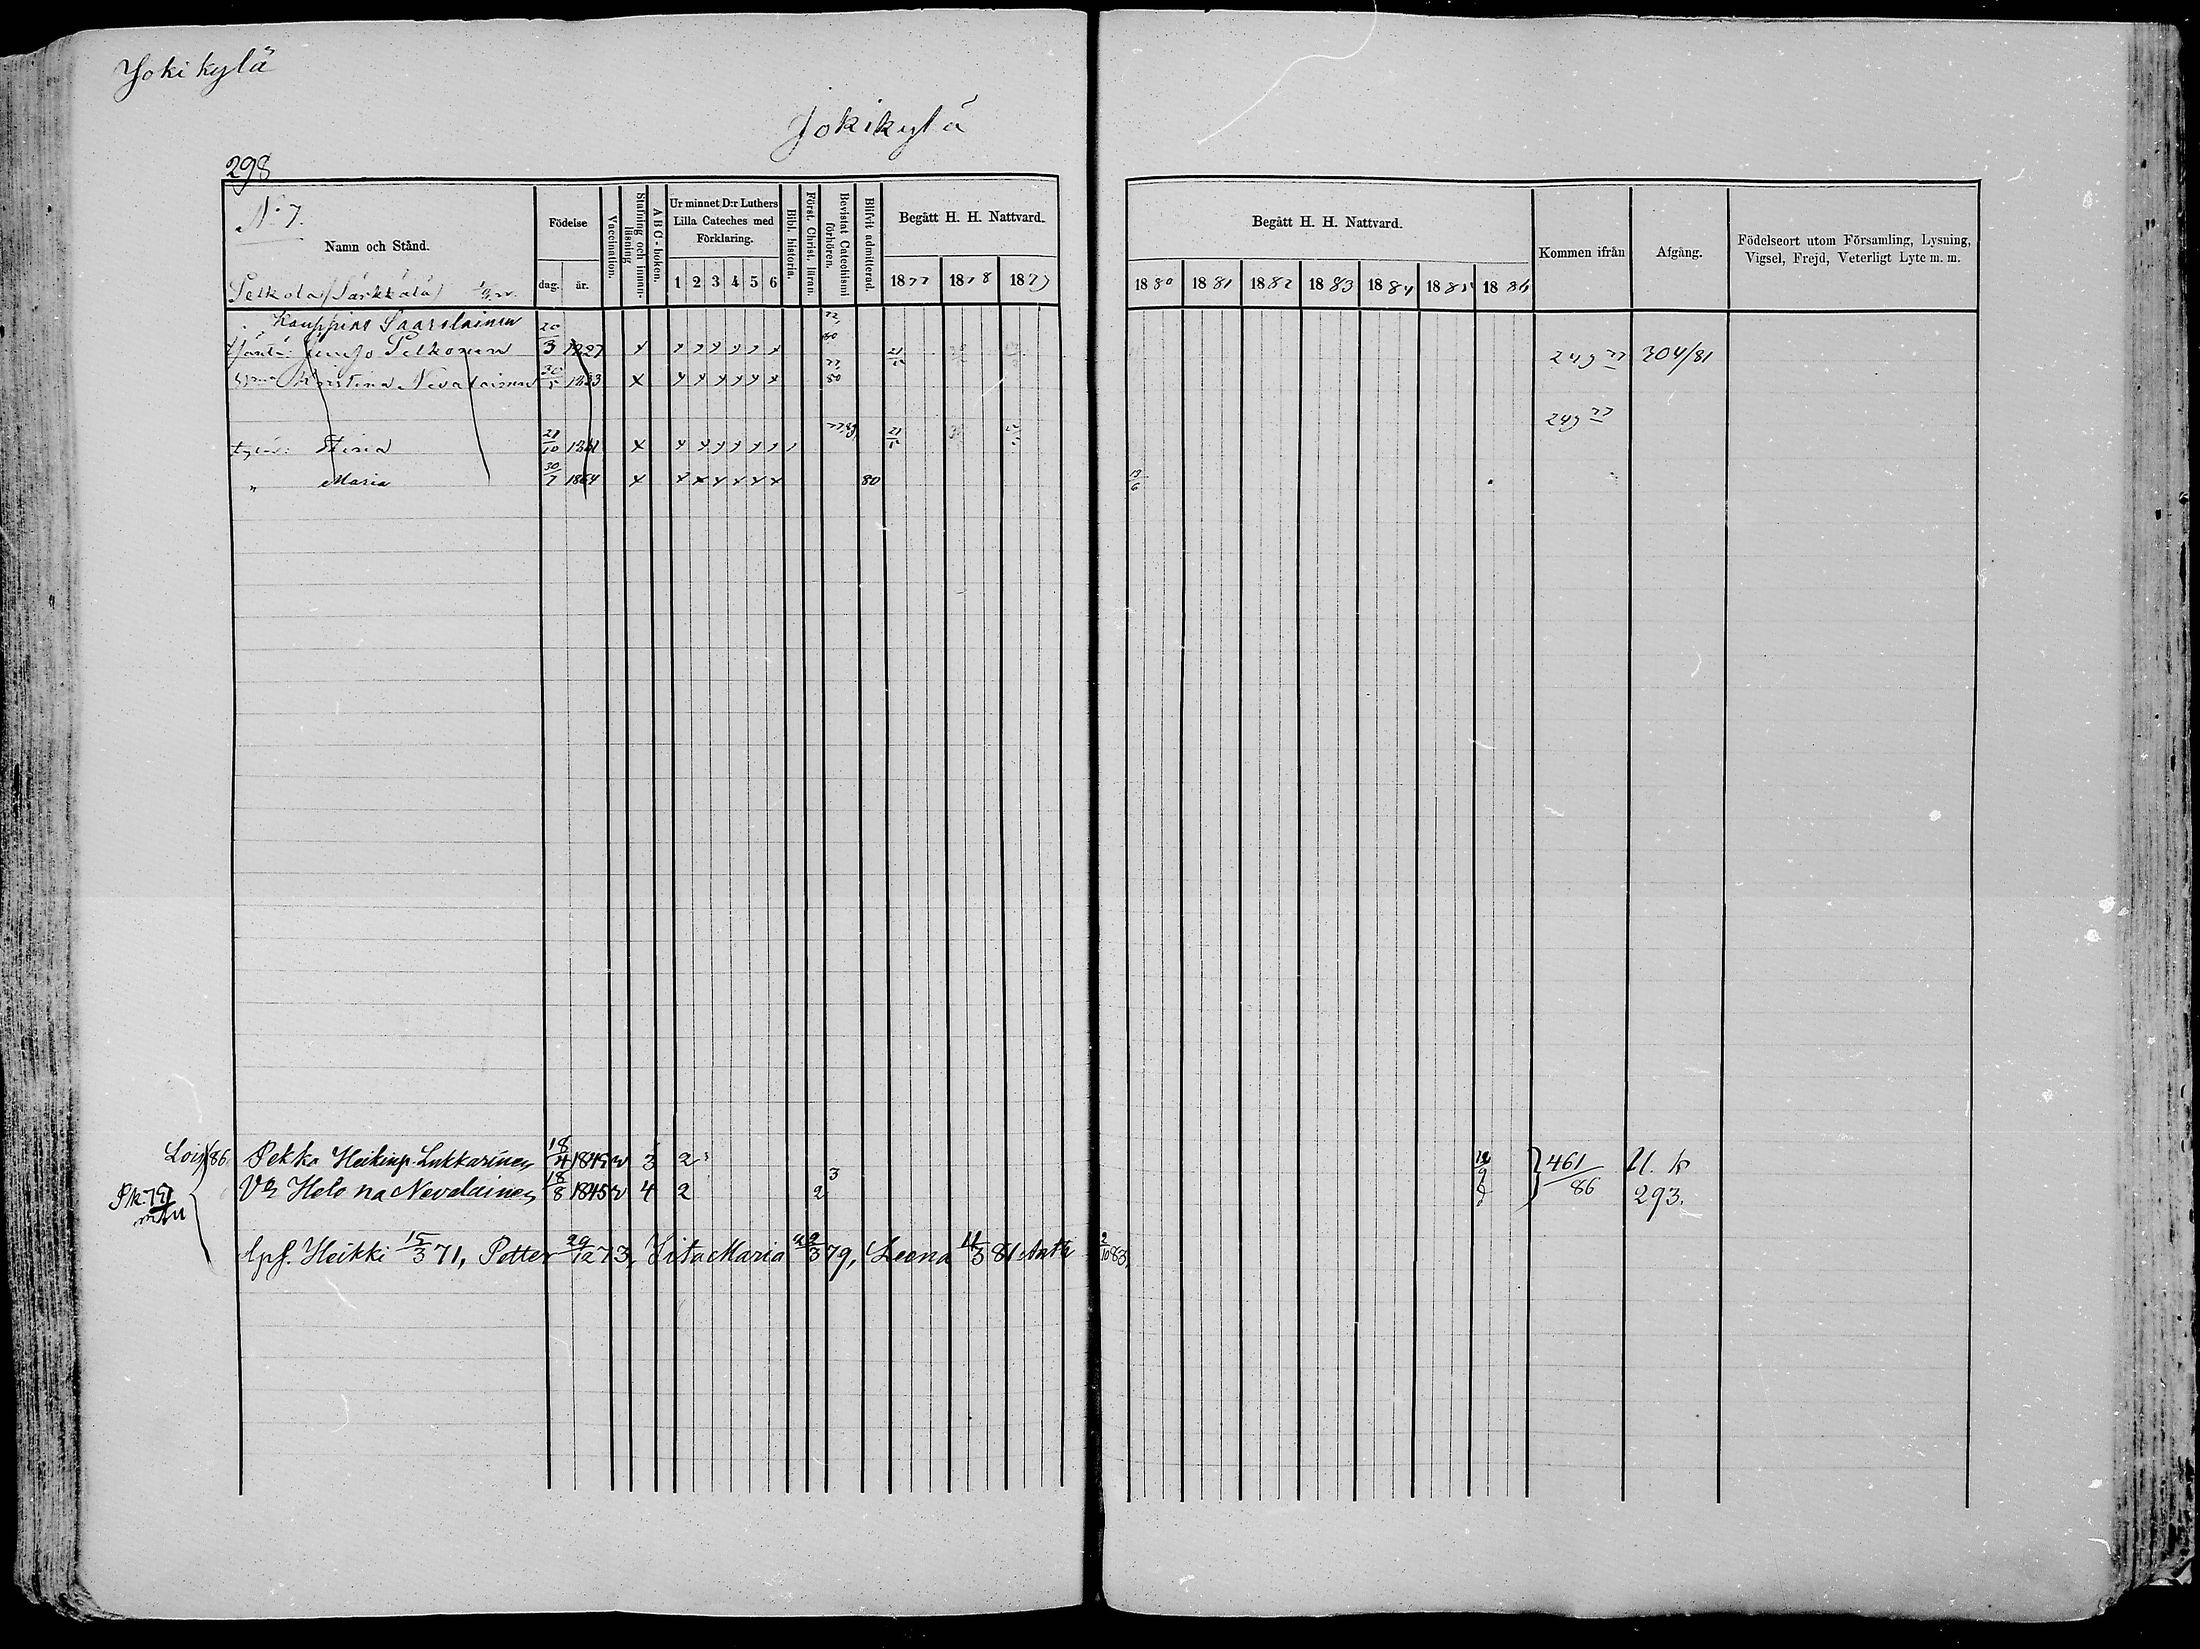 Jokikylä
Jokikylä
298
No 7.
Namn och Stånd.
Födelse
dag. år.
Vaccination.
Stafning och innan-läsning
ABC-boken.
Ur minnet D:r Luthers Lilla Cateches med Förklaring.
1 2 3 4 5 6
Bibl. historia.
Först. Christ. läran.
Bevistat Catechismi förhören.
Blifvit admitterad.
Begått H. H. Nattvard.
1877 1878 1879
Begått H. H. Nattvard.
1880 1881 1882 1883 1884 1885 1886
Kommen ifrån
Afgång.
Födelseort utom Församling, Lysning, Vigsel, Frejd, Veterligt Lyte m. m.
Pelkola (Särkkälä)
Kauppias Saarelainen
Pelkonen 20/3 1827 x 77, 80 249 77 304/81
Kristina Nevalainen 30/5 1833 x x x x x x x 77, 80
249 77
Stina 21/10 1861 x
" Maria 30/7 1864 x x x x x x x 80 13/6
86. Pekka Heikinp. Lukkarinen 18/4 1845 v 3 2 461/86 U. k
Vo Helena Nevalainen 18/8 1845 v 4 2 2 3 293.
Lpf. Heikki 15/3 71, Petter 29/12 73, Iita Maria 29/3 79, Leena 11/3 81 Antti 2/10 83,